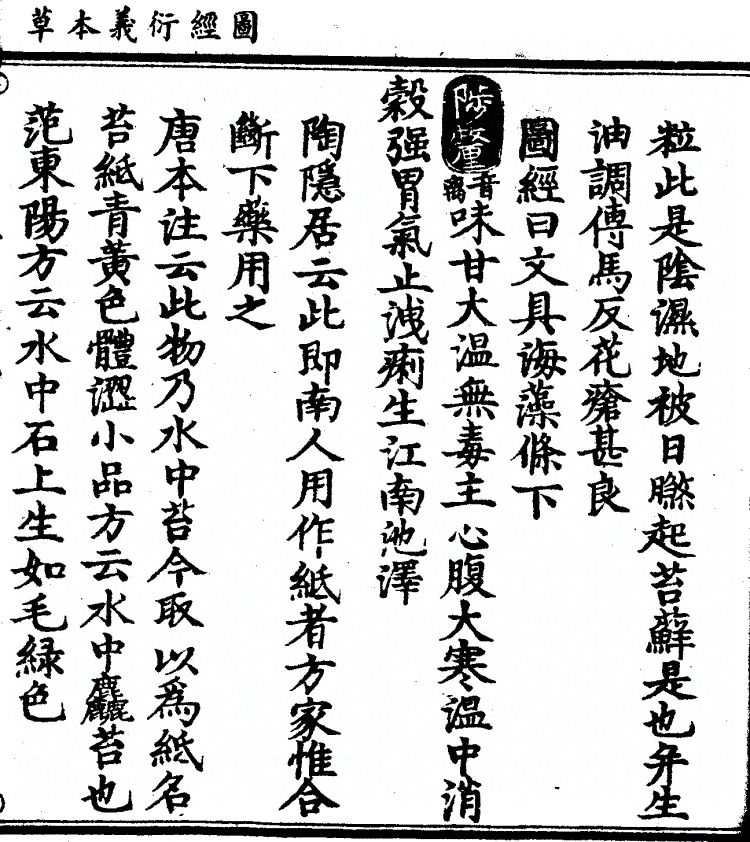 圖經衍義本草
粒此是陰濕地被日㬠起苔蘚是也并生
油調傅馬反花瘡甚良
圖經曰文具海藻條下
陟釐音離味甘大溫無毒主心腹大寒溫中消
穀强胃氣止洩痢生江南池澤
陶隱居云此即南人用作紙者方家惟合
斷下藥用之
唐本注云此物乃水中苔今取以爲紙名
苔紙青黃色體澀小品方云水中麤苔也
范東陽方云水中石上生如毛緑色